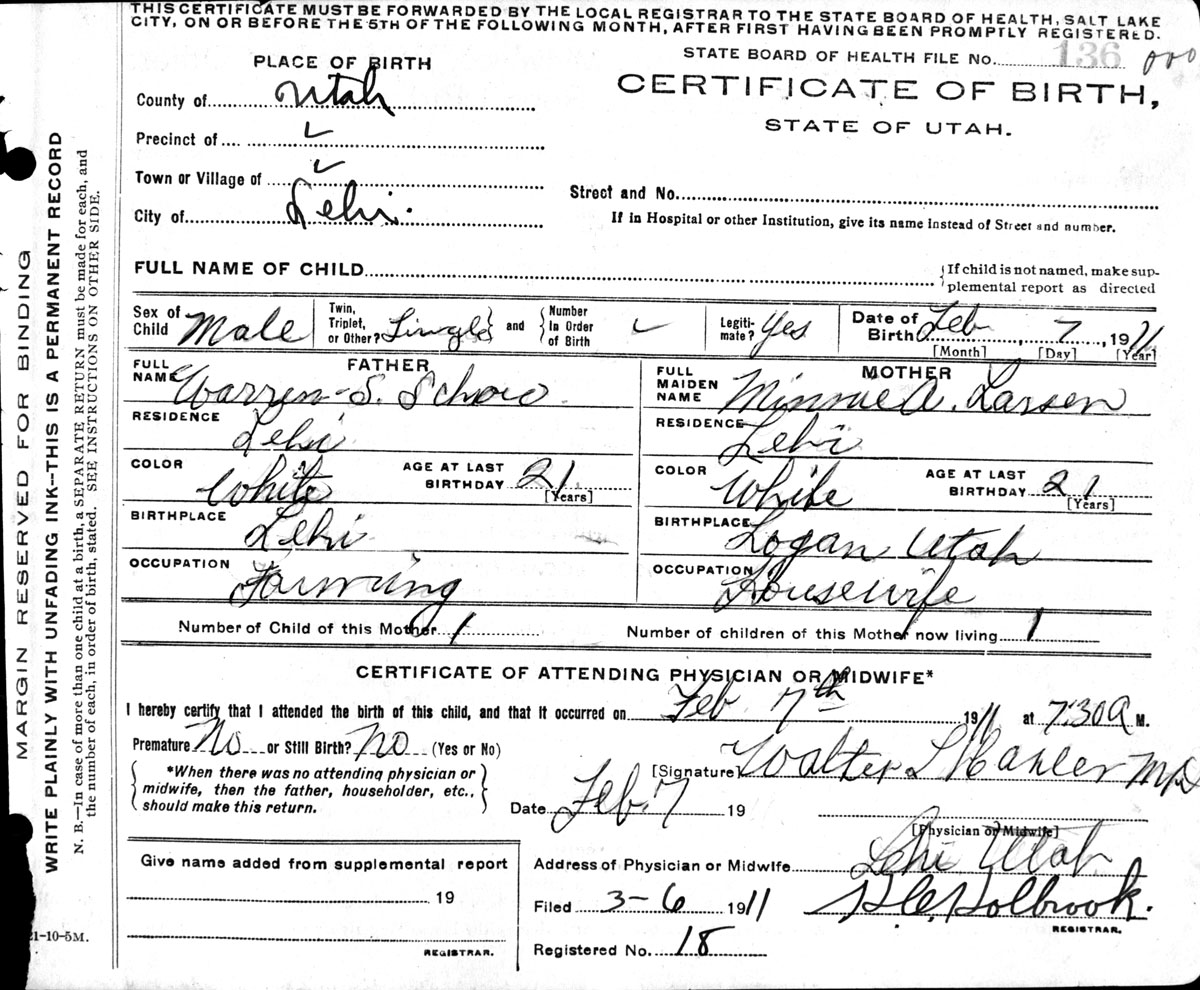 THIS CERTIFICATE MUST BE FORWARDED BY THE LOCAL REGISTRAR TO THE STATE BOARD OF HEALTH, SALT LAKE
CITY, ON OR BEFORE THE 5TH OF THE FOLLOWING MONTH, AFTER FIRST HAVING BEEN PROMPTLY REGISTERED.
STATE BOARD OF HEALTH FILE No. 136 000
PLACE OF BIRTH
CERTIFICATE OF BIRTH,
STATE OF UTAH.
County of Utah
Precinct of ✓
Town or Village of ✓
City of Lehi.
Street and No.
If in Hospital or other Institution, give its name instead of Street and number.
FULL NAME OF CHILD
{If child is not named, make sup-
plemental report as directed
Sex of Child Male
Twin, Triplet, or Other? Single } and { Number In Order of Birth ✓
Legiti-mate? Yes
Date of Birth Feb, 7, 1911
[Month] [Day] [Year]
FATHER
FULL NAME Warren S. Schow
RESIDENCE Lehi
COLOR White AGE AT LAST BIRTHDAY 21 [Years]
BIRTHPLACE Lehi
OCCUPATION Farming
MOTHER
FULL MAIDEN NAME Minnie A. Larsen
RESIDENCE Lehi
COLOR White AGE AT LAST BIRTHDAY 21 [Years]
BIRTHPLACE Logan Utah
OCCUPATION Housewife
Number of Child of this Mother 1 Number of children of this Mother now living 1
CERTIFICATE OF ATTENDING PHYSICIAN OR MIDWIFE*
I hereby certify that I attended the birth of this child, and that it occurred on Feb 7th 1911 at 7:30 A M.
Premature No or Still Birth? No (Yes or No)
{ *When there was no attending physician or
midwife, then the father, householder, etc.,
should make this return. }
[Signature] Walter L Hasler MD
Date Feb. 7 19
[Physician or Midwife]
Give name added from supplemental report
19
REGISTRAR.
Address of Physician or Midwife Lehi Utah
Filed 3-6 1911 Holbrook.
REGISTRAR.
Registered No. 18
MARGIN RESERVED FOR BINDING
WRITE PLAINLY WITH UNFADING INK--THIS IS A PERMANENT RECORD
N. B.—In case of more than one child at a birth, a SEPARATE RETURN must be made for each, and
the number of each, in order of birth, stated. SEE INSTRUCTIONS ON OTHER SIDE.
1-10-5M.